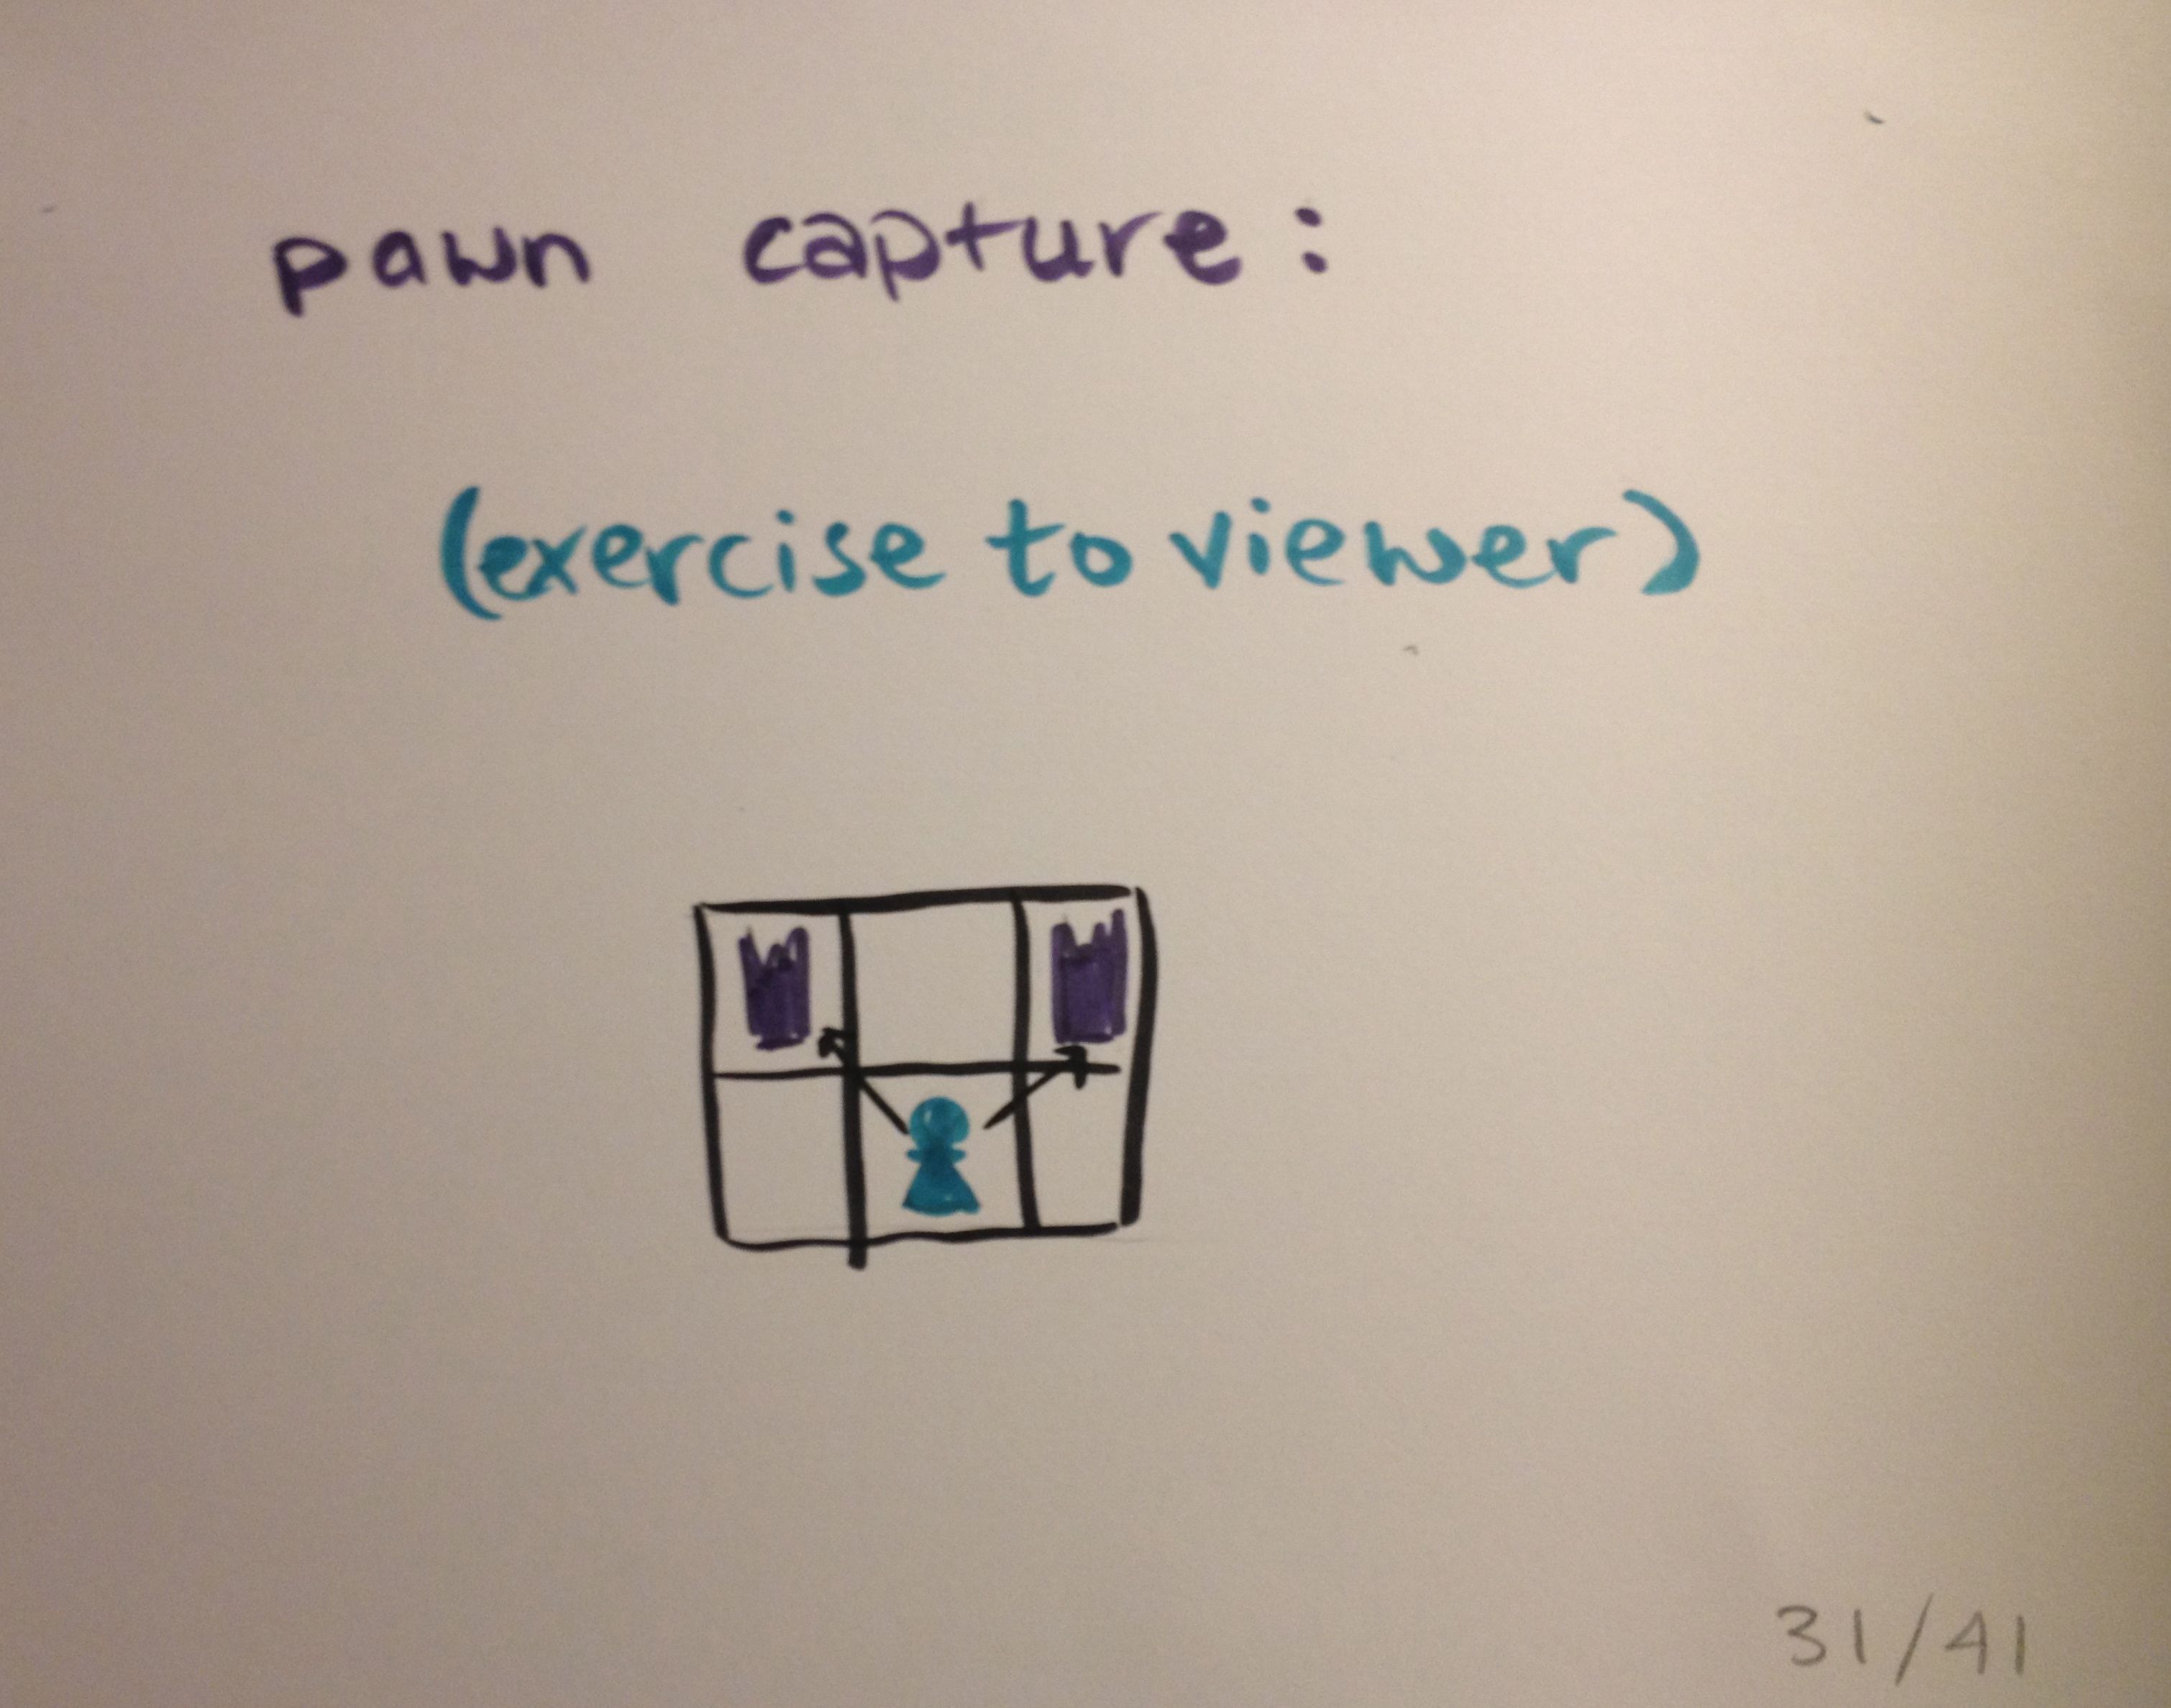 pawn capture:
(exercise to viewer)
31/41